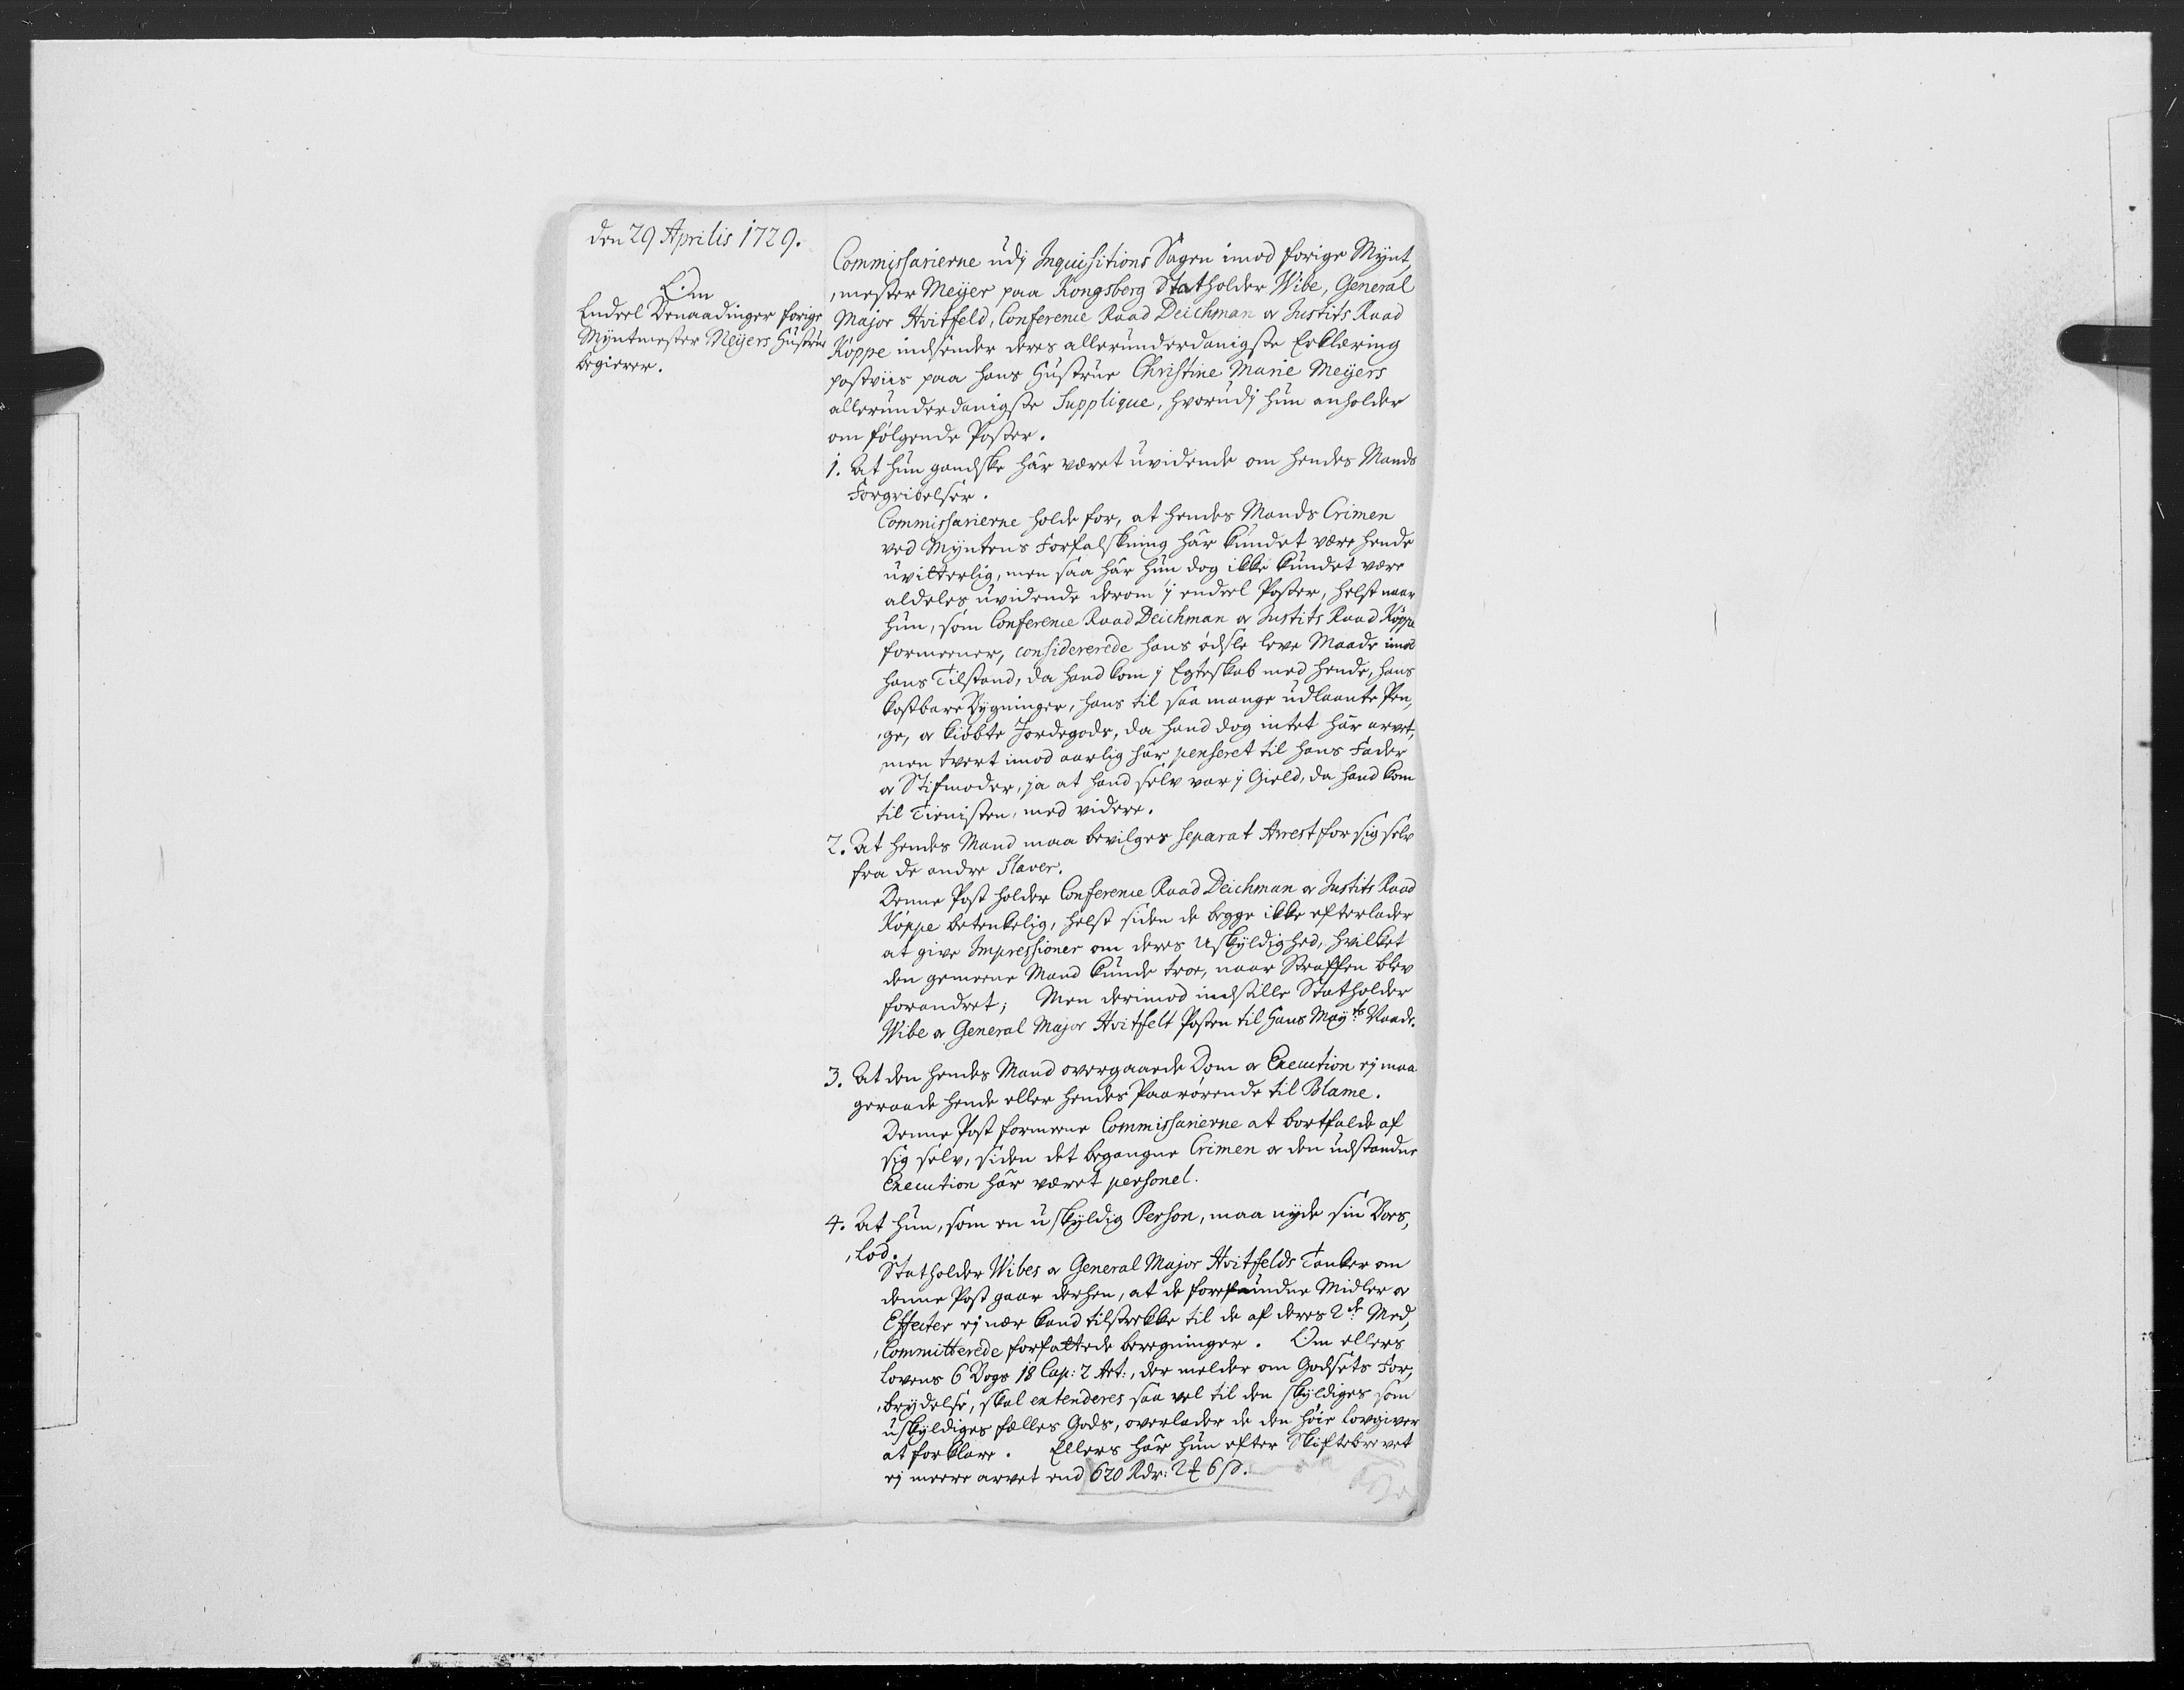 den 29 Aprilis 1729.
Om
Endeel Benaadinger forige
Myntmester Meÿers Hustrue
begierer.
Commissarierne udj Inquisitions Sagen imod forige Mynt,
,mester Meÿer paa Kongsberg Statholder Wibe, General
Major Hvitfeld, Conference Raad Deichman og Justits Raad
Köppe indsender deres allerunderdanigste Erklæring
postviis paa hans Hustrue Christine Marie Meÿers
allerunderdanigste Supplique, hvorudj hun anholder
om følgende Poster.
1. At hun gandske har været uvidende om hendes Mands
Forgribelser.
Commissarierne holde for, at hendes Mands Crimen
ved Myntens Forfalskning har kundet være hende
uvitterlig, men saa har hun dog ikke kundet være
aldeles uvidende derom j endeel Poster, helst naar
hun, som Conference Raad Deichman og Justits Raad Köppe
formeener, considererede hans ødsle leve Maade imod
hans Tilstand, da hand kom j Egteskab med hende, hans
kostbare Bygninger, hans til saa mange udlaante Pen,
,ge, og kiøbte Jordegods, da hand dog intet har arvet,
men tvert imod aarlig har penseret til hans Fader
og Stifmoder, ja at hand selv var j Gield, da hand kom
til Tienisten, med videre.
2. At hendes Mand maa bevilges separat Arrest for sig selv
fra de andre Slaver.
Denne Post holder Conference Raad Deichman og Justits Raad
Köppe betenkelig, helst siden de begge ikke efterlader
at give Impressioner om deres Uskyldighed, hvilket
den gemeene Mand kunde troe, naar Straffen blev
forandret; Men derimod indstille Statholder
Wibe og General Major Hvitfelt Posten til Hans Mayts Naade.
3. At den hendes Mand overgaaede Dom og Execution ej maa
geraade hende eller hendes Paarørende til Blame.
Denne Post formeene Commissarierne at bortfalde af
sig selv, siden det begangne Crimen og den udstandne
Execution har været personel.
4. At hun, som en uskyldig Person, maa nyde sin Boes,
,lod.
Statholder Wibes og General Major Hvitfelds Tanker om
denne Post gaar derhen, at de forefundne Midler og
Effecter ej nær kand tilstrekke til de af deres 2de Med,
,Committerede forfattede beregninger. Om ellers
Lovens 6 Bogs 18 Cap: 2 Art:, der melder om Godsets For,
,brydelse, skal extenderes saa vel til den skyldiges som
uskyldiges fælles Gods, overlader de den høie Lovgiver
at forklare. Ellers har hun efter Skiftebrevet
ej meere arvet end 620 Rdr: 2 6 s.